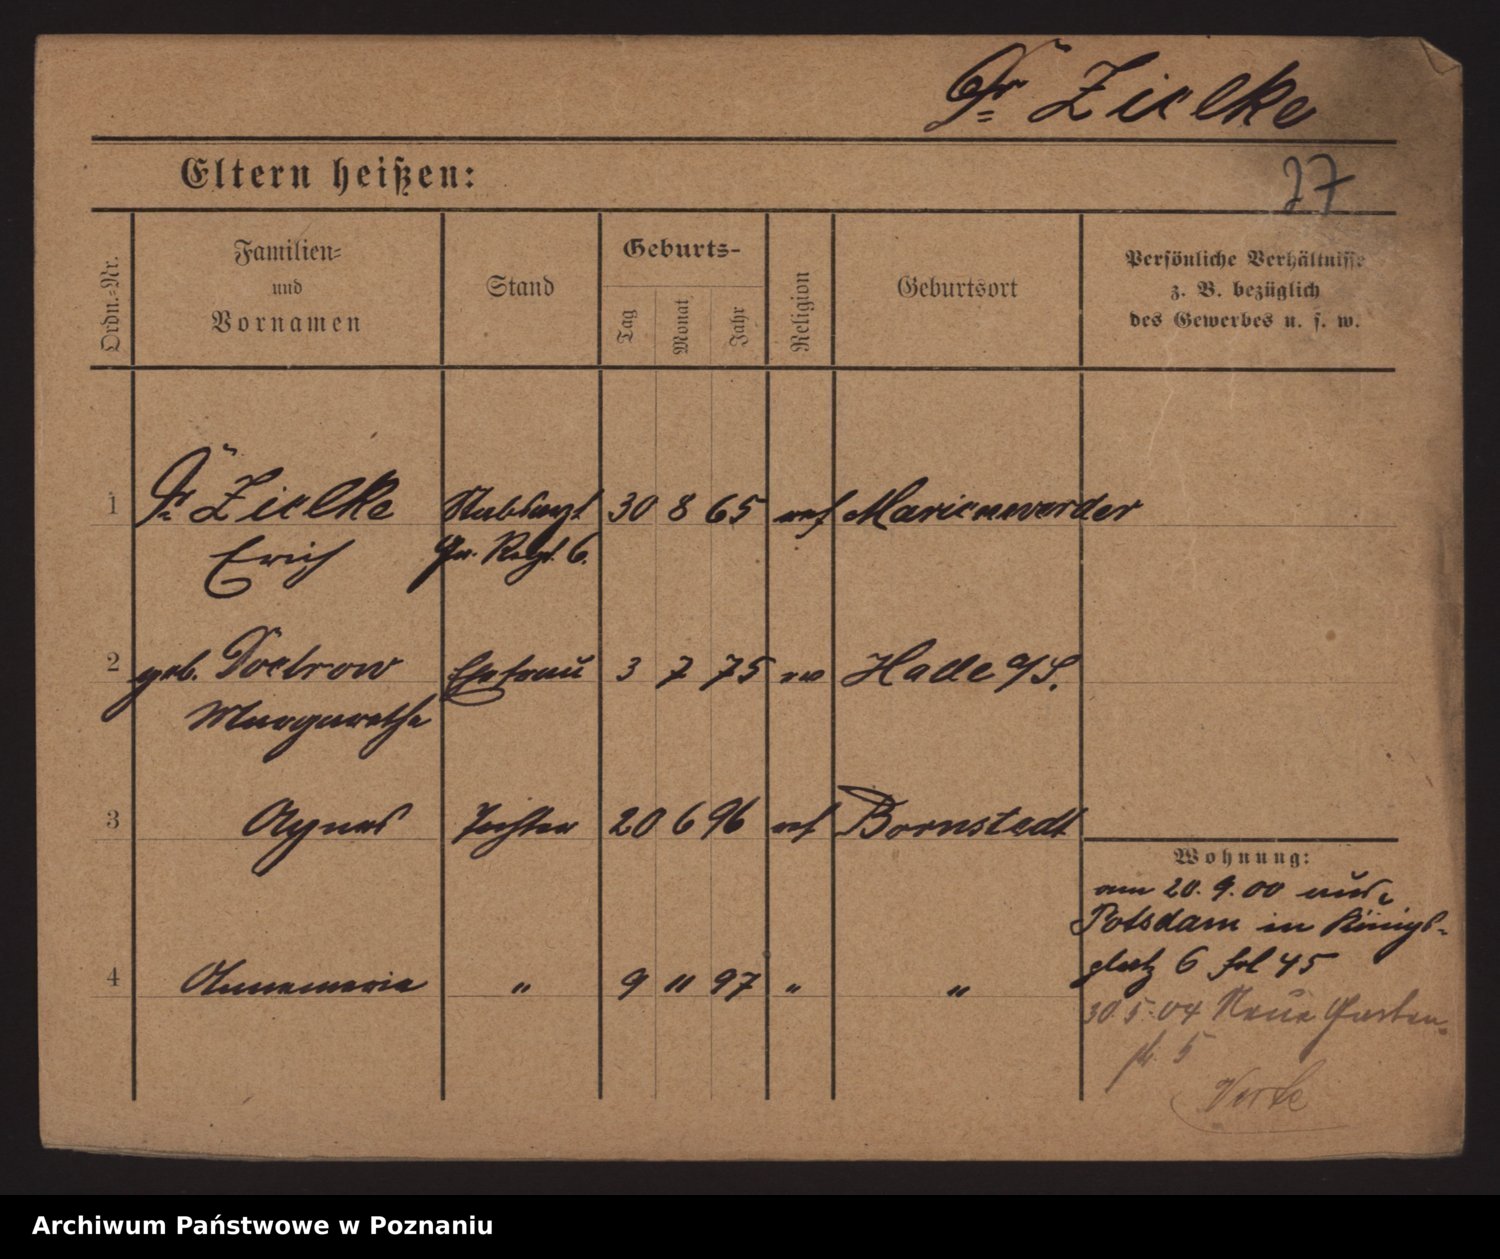 Dr Zielke
Eltern heißen:
27
Ordn.-Nr.
Familien-
und
Vornamen
Stand
Geburts-
Tag
Monat
Jahr
Religion
Geburtsort
Persönliche Verhältnisse
z. B. bezüglich
des Gewerbes u. s. w.
1 Dr Zielke Stabsarzt 30 8 65 ref Marienwerder
Erich Gr. Regt. 6.
2 geb. Doetrow Ehefrau 3 7 75 Halle a/S.
Margarethe
3 Agnes Tochter 20 6 96 ref Bornstedt
Wohnung:
am 20. 9. 00 aus
Potsdam in Königs-
platz 6 fol 45
4 Annemarie " 9 11 97 " "
30.5.04 Neue Garten-
str. 5